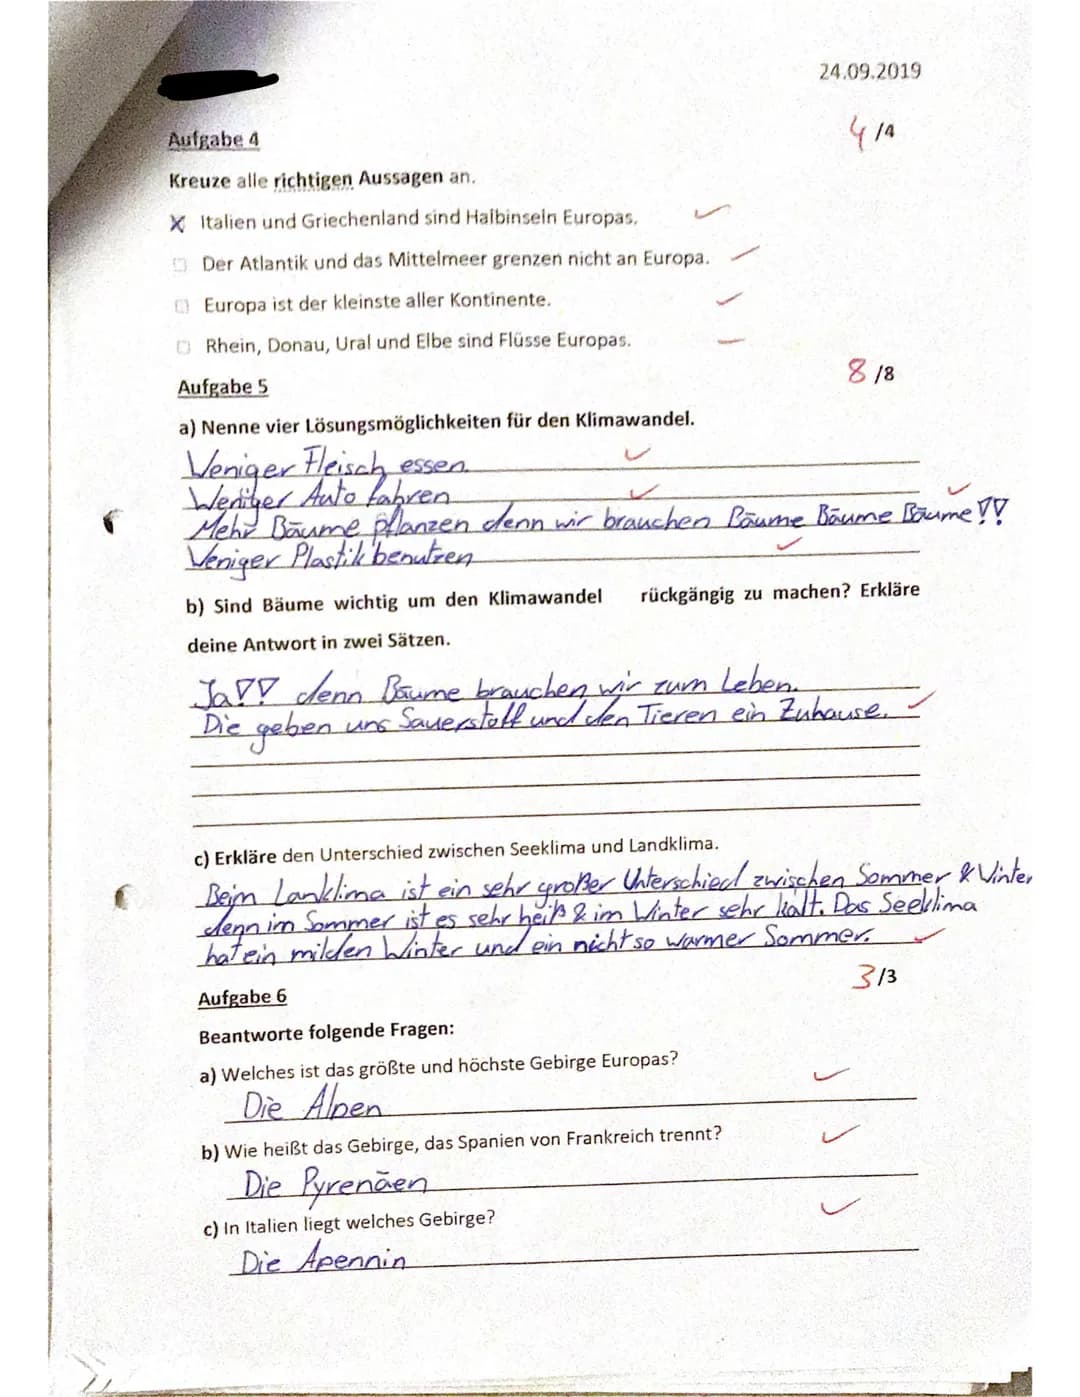 24.09.2019
Aufgabe 4
4 /4
Kreuze alle richtigen Aussagen an.
Italien und Griechenland sind Halbinseln Europas.
Der Atlantik und das Mittelmeer grenzen nicht an Europa.
Europa ist der kleinste aller Kontinente.
Rhein, Donau, Ural und Elbe sind Flüsse Europas.
8 /8
Aufgabe 5
a) Nenne vier Lösungsmöglichkeiten für den Klimawandel.
Weniger Fleisch essen.
Weniger Auto fahren
Mehr Bäume pflanzen denn wir brauchen Bäume Bäume Bäume!!
Weniger Plastik benutzen
b) Sind Bäume wichtig um den Klimawandel rückgängig zu machen? Erkläre
deine Antwort in zwei Sätzen.
Ja!! denn Bäume brauchen wir zum Leben.
Die geben uns Sauerstoff und den Tieren ein Zuhause.
c) Erkläre den Unterschied zwischen Seeklima und Landklima.
Beim Lanklima ist ein sehr großer Unterschied zwischen Sommer & Winter
denn im Sommer ist es sehr heiß & im Winter sehr kalt. Das Seeklima
hat ein milden Winter und ein nicht so warmer Sommer.
3/3
Aufgabe 6
Beantworte folgende Fragen:
a) Welches ist das größte und höchste Gebirge Europas?
Die Alpen
b) Wie heißt das Gebirge, das Spanien von Frankreich trennt?
Die Pyrenäen
c) In Italien liegt welches Gebirge?
Die Apennin